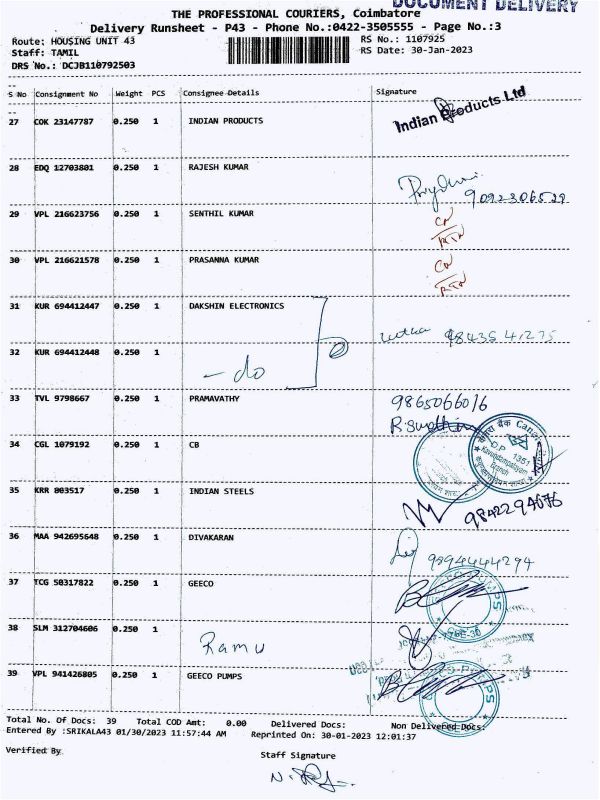 DOCUMENT DELIVERY
THE PROFESSIONAL COURIERS, Coimbatore
Delivery Runsheet - P43 - Phone No.:0422-3505555 - Page No.:3
Route: HOUSING UNIT 43
RS No.: 1107925
Staff: TAMIL
RS Date: 30-Jan-2023
DRS No.: DCJB110792503
S No Consignment No Weight PCS Consignee Details Signature
27 COK 23147787 0.250 1 INDIAN PRODUCTS Indian Products Ltd
28 EDQ 12703801 0.250 1 RAJESH KUMAR
9092306529
29 VPL 216623756 0.250 1 SENTHIL KUMAR
30 VPL 216621578 0.250 1 PRASANNA KUMAR
31 KUR 694412447 0.250 1 DAKSHIN ELECTRONICS
9843541275
32 KUR 694412448 0.250 1
- do
33 TVL 9798667 0.250 1 PRAMAVATHY 9865066016
34 CGL 1079192 0.250 1 CB
D.P. 1351
Branch
35 KRR 803517 0.250 1 INDIAN STEELS
9842294676
36 MAA 942695648 0.250 1 DIVAKARAN
9994444294
37 TCG 50317822 0.250 1 GEECO
38 SLM 312704606 0.250 1
Ramu
39 VPL 941426805 0.250 1 GEECO PUMPS
Total No. Of Docs: 39 Total COD Amt: 0.00 Delivered Docs: Non Delivered Docs:
Entered By :SRIKALA43 01/30/2023 11:57:44 AM Reprinted On: 30-01-2023 12:01:37
Verified By
Staff Signature